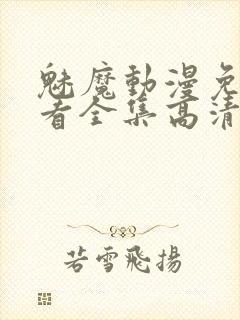 魅魔動漫免
看全集高清
若雪飛揚